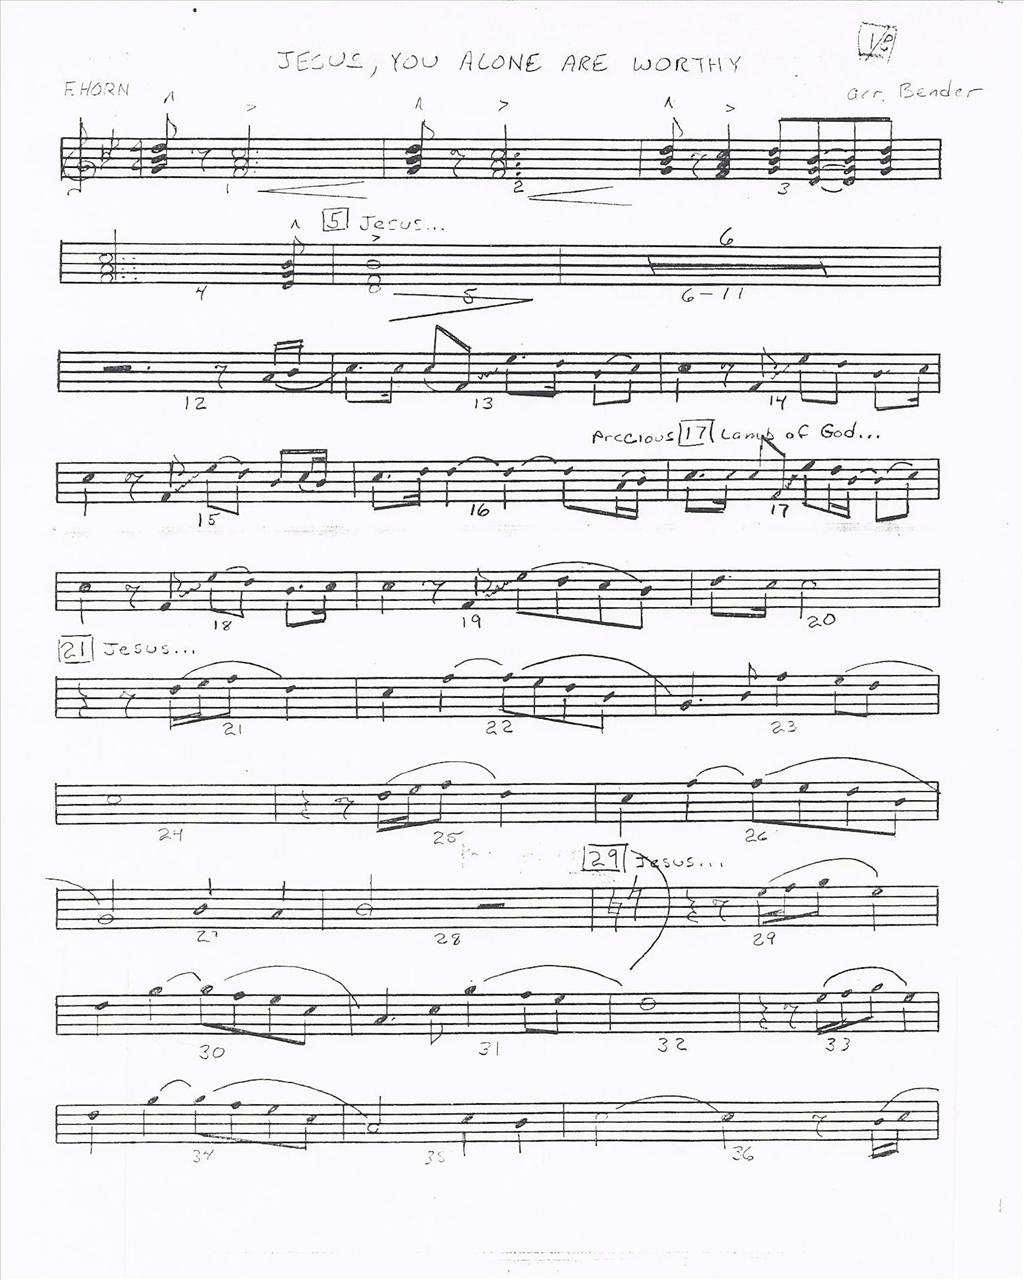 JESUS, YOU ALONE ARE WORTHY
F. HORN
arr. Bender
1 2 3
5 Jesus...
6
4 5 6-11
12 13 14
Precious 17 Lamb of God...
15 16 17
18 19 20
21 Jesus...
21 22 23
24 25 26
29 Jesus...
27 28 29
30 31 32 33
34 35 36